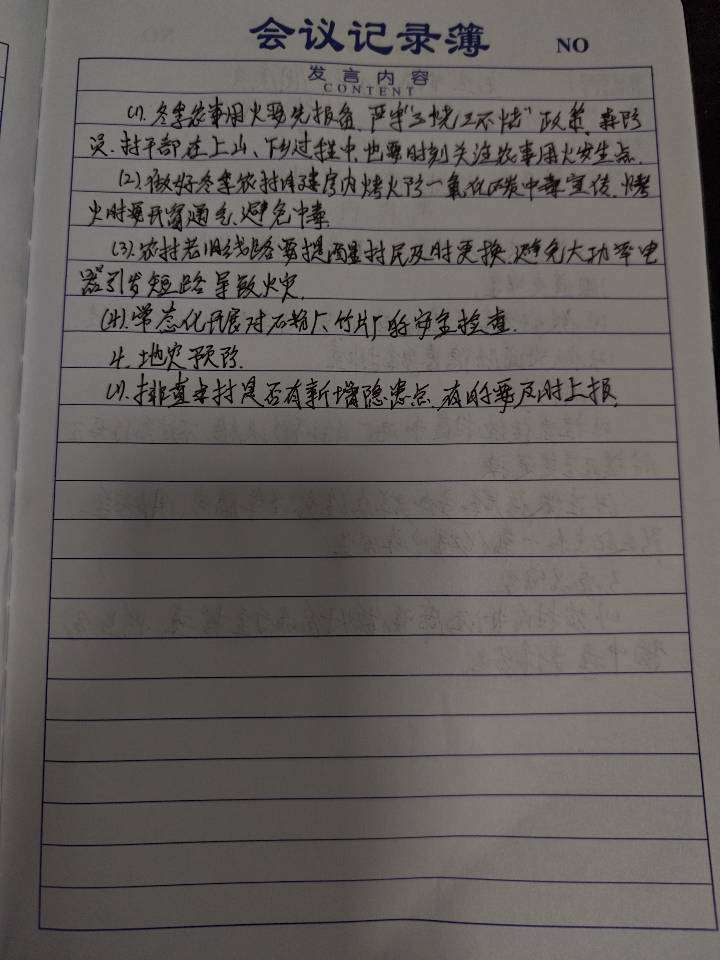 会议记录簿 NO
发言内容
CONTENT
(1). 冬季农事用火要先报备, 严守"五烧五不烧"政策, 森防
员、村干部在上山、下乡过程中, 也要时刻关注农事用火安生点.
(2) 做好冬季农村用房内烤火防一氧化碳中毒宣传, 烤
火时要开窗通气, 避免中毒.
(3). 农村老旧线路要提醒村民及时更换, 避免大功率电
器引发短路导致火灾.
(4). 常态化开展对石粉厂、竹片厂的安全检查.
4. 地灾预防.
(1). 排查本村是否有新增隐患点, 有的要及时上报.